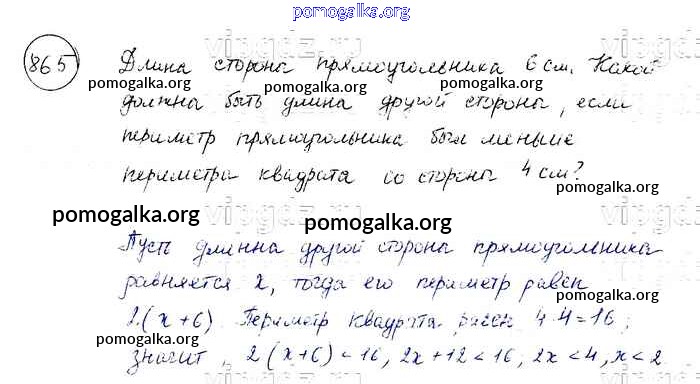 pomogalka.org
865 Длина стороны прямоугольника 6 см. Какой
pomogalka.org pomogalka.org pomogalka.org
должна быть длина другой стороны, если
периметр прямоугольника был меньше
периметра квадрата со стороны 4 см?
pomogalka.org pomogalka.org pomogalka.org
Пусть длинна другой стороны прямоугольника
равняется x, тогда его периметр равен
pomogalka.org
2.(x+6). Периметр квадрата равен 4.4=16;
pomogalka.org pomogalka.org
значит, 2(x+6)<16, 2x+12<16, 2x<4, x<2